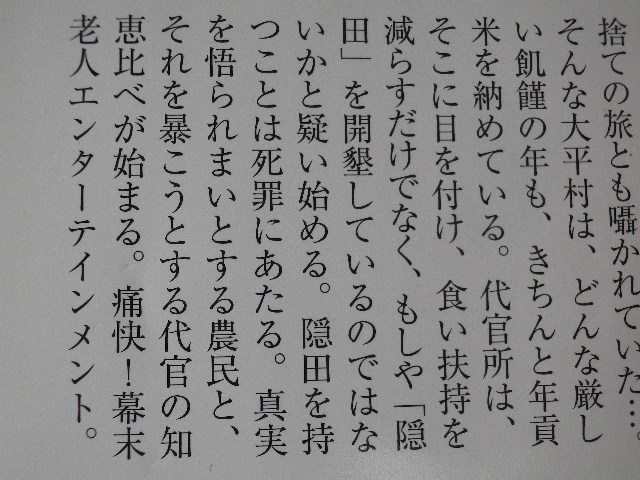 捨ての旅とも囁かれていた…。
そんな大平村は、どんな厳し
い飢饉の年も、きちんと年貢
米を納めている。代官所は、
そこに目を付け、食い扶持を
減らすだけでなく、もしや「隠
田」を開墾しているのではな
いかと疑い始める。隠田を持
つことは死罪にあたる。真実
を悟られまいとする農民と、
それを暴こうとする代官の知
恵比べが始まる。痛快！幕末
老人エンターテインメント。